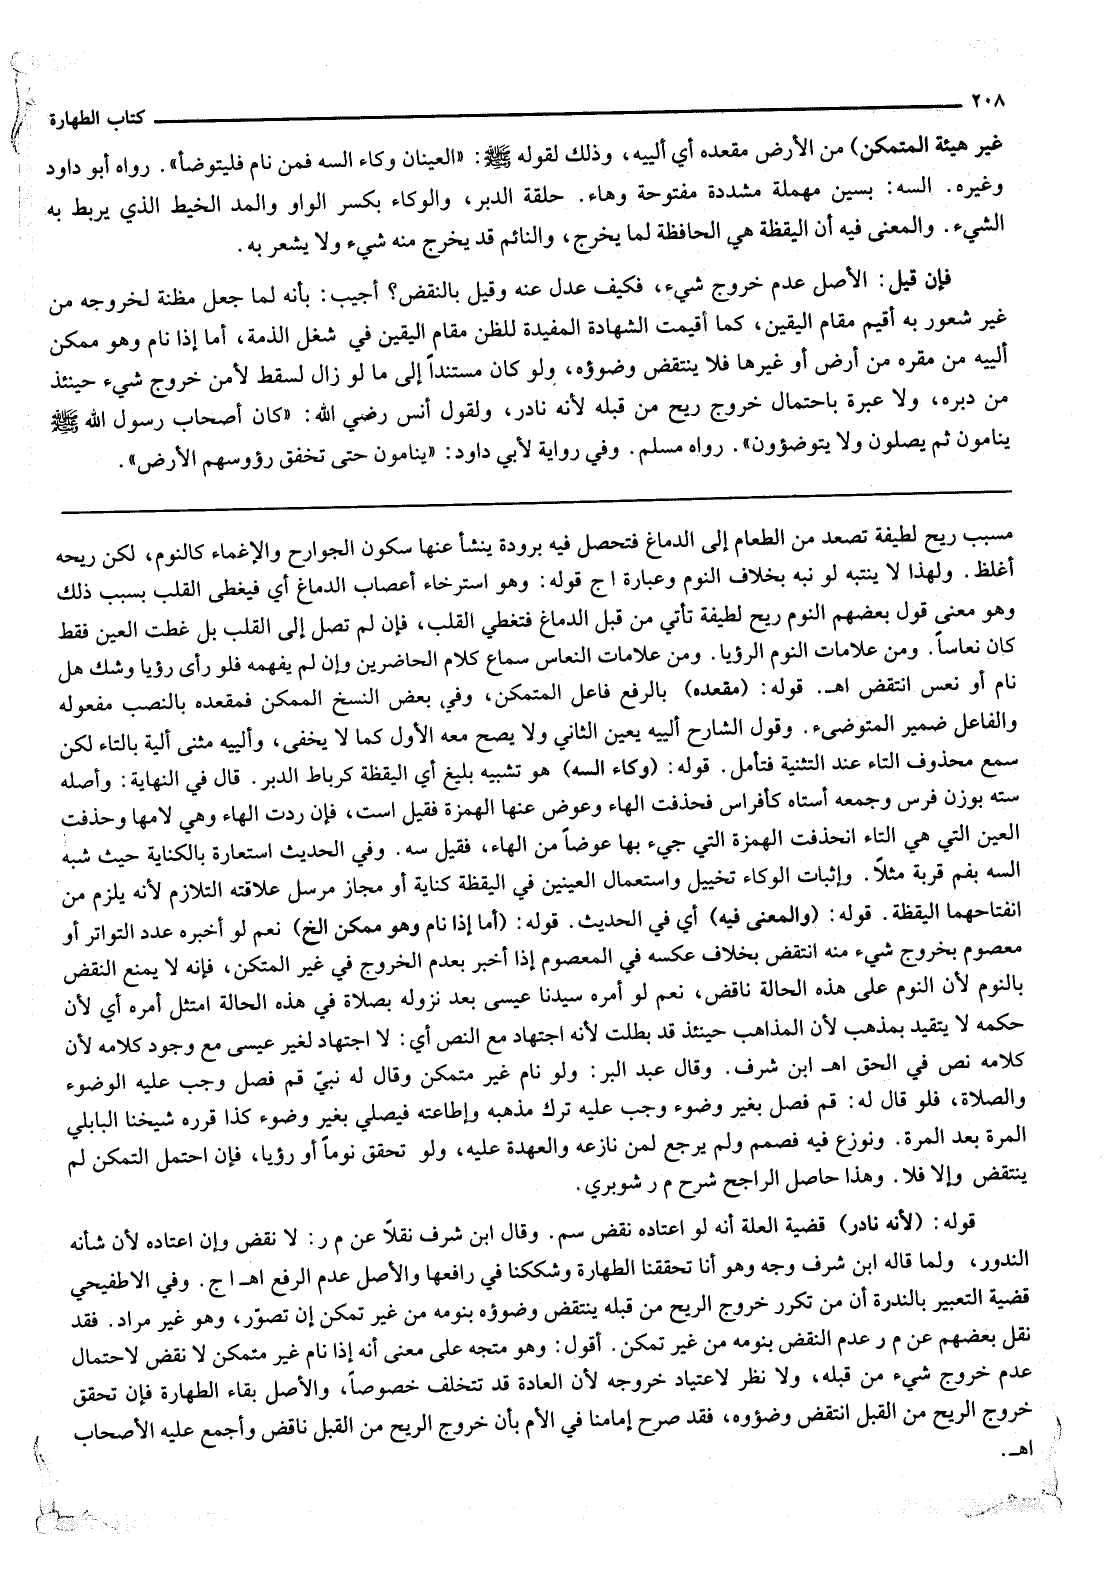 ٢٠٨
كتاب الطهارة
غير هيئة المتمكن) من الأرض مقعده أي ألييه، وذلك لقوله ﷺ: «العينان وكاء السه فمن نام فليتوضأ». رواه أبو داود
وغيره. السه: بسين مهملة مشددة مفتوحة وهاء. حلقة الدبر، والوكاء بكسر الواو والمد الخيط الذي يربط به
الشيء. والمعنى فيه أن اليقظة هي الحافظة لما يخرج، والنائم قد يخرج منه شيء ولا يشعر به.
فإن قيل: الأصل عدم خروج شيء، فكيف عدل عنه وقيل بالنقض؟ أجيب: بأنه لما جعل مظنة لخروجه من
غير شعور به أقيم مقام اليقين، كما أقيمت الشهادة المفيدة للظن مقام اليقين في شغل الذمة، أما إذا نام وهو ممكن
ألييه من مقره من أرض أو غيرها فلا ينتقض وضوؤه، ولو كان مستنداً إلى ما لو زال لسقط لأمن خروج شيء حينئذ
من دبره، ولا عبرة باحتمال خروج ريح من قبله لأنه نادر، ولقول أنس رضي الله: «كان أصحاب رسول الله ﷺ
ينامون ثم يصلون ولا يتوضؤون». رواه مسلم. وفي رواية لأبي داود: «ينامون حتى تخفق رؤوسهم الأرض».
مسبب ريح لطيفة تصعد من الطعام إلى الدماغ فتحصل فيه برودة ينشأ عنها سكون الجوارح والإغماء كالنوم، لكن ريحه
أغلظ. ولهذا لا ينتبه لو نبه بخلاف النوم وعبارة ا ج قوله: وهو استرخاء أعصاب الدماغ أي فيغطى القلب بسبب ذلك
وهو معنى قول بعضهم النوم ريح لطيفة تأتي من قبل الدماغ فتغطي القلب، فإن لم تصل إلى القلب بل غطت العين فقط
كان نعاساً. ومن علامات النوم الرؤيا. ومن علامات النعاس سماع كلام الحاضرين وإن لم يفهمه فلو رأى رؤيا وشك هل
نام أو نعس انتقض اهـ. قوله: (مقعده) بالرفع فاعل المتمكن، وفي بعض النسخ الممكن فمقعده بالنصب مفعوله
والفاعل ضمير المتوضىء. وقول الشارح ألييه يعين الثاني ولا يصح معه الأول كما لا يخفى، وألييه مثنى ألية بالتاء لكن
سمع محذوف التاء عند التثنية فتأمل. قوله: (وكاء السه) هو تشبيه بليغ أي اليقظة كرباط الدبر. قال في النهاية: وأصله
سته بوزن فرس وجمعه أستاه كأفراس فحذفت الهاء وعوض عنها الهمزة فقيل است، فإن ردت الهاء وهي لامها وحذفت
العين التي هي التاء انحذفت الهمزة التي جيء بها عوضاً من الهاء، فقيل سه. وفي الحديث استعارة بالكناية حيث شبه
السه بفم قربة مثلاً. وإثبات الوكاء تخييل واستعمال العينين في اليقظة كناية أو مجاز مرسل علاقته التلازم لأنه يلزم من
انفتاحهما اليقظة. قوله: (والمعنى فيه) أي في الحديث. قوله: (أما إذا نام وهو ممكن الخ) نعم لو أخبره عدد التواتر أو
معصوم بخروج شيء منه انتقض بخلاف عكسه في المعصوم إذا أخبر بعدم الخروج في غير المتكن، فإنه لا يمنع النقض
بالنوم لأن النوم على هذه الحالة ناقض، نعم لو أمره سيدنا عيسى بعد نزوله بصلاة في هذه الحالة امتثل أمره أي لأن
حكمه لا يتقيد بمذهب لأن المذاهب حينئذ قد بطلت لأنه اجتهاد مع النص أي: لا اجتهاد لغير عيسى مع وجود كلامه لأن
كلامه نص في الحق اهـ ابن شرف. وقال عبد البر: ولو نام غير متمكن وقال له نبيّ قم فصل وجب عليه الوضوء
والصلاة، فلو قال له: قم فصل بغير وضوء وجب عليه ترك مذهبه وإطاعته فيصلي بغير وضوء كذا قرره شيخنا البابلي
المرة بعد المرة. ونوزع فيه فصمم ولم يرجع لمن نازعه والعهدة عليه، ولو تحقق نوماً أو رؤيا، فإن احتمل التمكن لم
ينتقض وإلا فلا. وهذا حاصل الراجح شرح م ر شوبري.
قوله: (لأنه نادر) قضية العلة أنه لو اعتاده نقض سم. وقال ابن شرف نقلاً عن م ر: لا نقض وإن اعتاده لأن شأنه
الندور، ولما قاله ابن شرف وجه وهو أنا تحققنا الطهارة وشككنا في رافعها والأصل عدم الرفع اهـ ا ج. وفي الاطفيحي
قضية التعبير بالندرة أن من تكرر خروج الريح من قبله ينتقض وضوؤه بنومه من غير تمكن إن تصوّر، وهو غير مراد. فقد
نقل بعضهم عن م ر عدم النقض بنومه من غير تمكن. أقول: وهو متجه على معنى أنه إذا نام غير متمكن لا نقض لاحتمال
عدم خروج شيء من قبله، ولا نظر لاعتياد خروجه لأن العادة قد تتخلف خصوصاً، والأصل بقاء الطهارة فإن تحقق
خروج الريح من القبل انتقض وضوؤه، فقد صرح إمامنا في الأم بأن خروج الريح من القبل ناقض وأجمع عليه الأصحاب
اهـ.